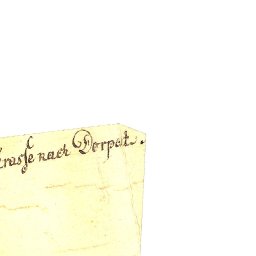 trasse nach Dorpat.